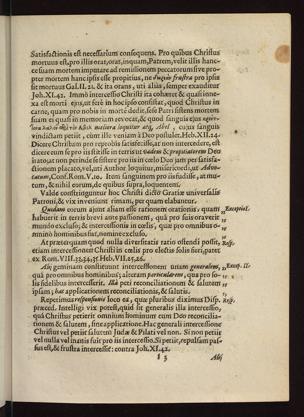 Satisfactionis est necessarium consequens. Pro quibus Christus
mortuus est, pro illis orat, orat, inquam, Patrem, velit illis hanc-
ce suam mortem imputare ad remissionem peccatorum sive pro-
pter mortem hancce ipsis esse propitius, ne frustra pro ipsis
sit mortuus Gal. II. 21. & ita orans, uti alias, semper exauditur
Joh. XI. 42. Immò intercessio Christi ita cohæret & quasi inne-
xa est morti ejus, ut ferè in hoc ipso consistat, quod Christus in
carne, quam pro nobis in morte dedit, sese Patri sistens mortem
suam ei quasi in memoriam revocat, & quod sanguis ejus
Abel, cujus sanguis
vindictam petiit, cum ille veniam à Deo postulet. Heb. XII. 24.
Dicere Christum pro reprobis satisfecisse, at non intercedere, est
dicere eum se pro iis stitisse in terris ut vadem & propitiatorem Deo
irato, at non perinde se sistere pro iis in cœlo Deo jam per satisfa-
ctionem placato, vel, uti Author loquitur, misericordi, ut Advo-
catum, Conf. Rom. V. 10. Item sanguinem pro iis fudisse, at mu-
tum, & nihil eorum, de quibus supra, loquentem.
Valde constringuntur hoc Christi dicto Gratiæ universalis
Patroni, & vix inveniunt rimam, per quam elabantur.
Quidam eorum ajunt aliam esse rationem orationis, quam
habuerit in terris brevi ante passionem, quâ pro suis oraverit
mundo excluso; & intercessionis in cœlis, quæ pro omnibus o-
mninò hominibus fiat, nemine excluso.
At præterquam quod nulla diversitatis ratio ostendi possit,
etiam intercessionem Christi in cœlis pro electis solis fieri, patet
ex Rom. VIII. 33, 34, 35 Heb. VII. 25, 26.
Alii geminam constituunt intercessionem unam generalem,
quâ pro omnibus hominibus; alteram particularem, qua pro so-
lis fidelibus intercesserit. Illâ peti reconciliationem & salutem
ipsam; hac applicationem reconciliationis, & salutis.
Repetimus responsionis loco ea, quæ pluribus diximus Disp.
præced. Intelligi vix potest, quid sit generalis illa intercessio,
quâ Christus petierit omnium hominum cum Deo reconciliatio-
nem & salutem, sine applicatione. Hac generali intercessione
Christus vel petiit salutem Judæ & Pilati vel non. Si non petiit
vel nulla vel inanis fuit pro iis intercessio. Si petiit, repulsam pas-
sus est, & frustra intercessit: contra Joh. XI. 42.
I 3 Alii
Exceptio I.
Resp.
Exce. II.
Resp.